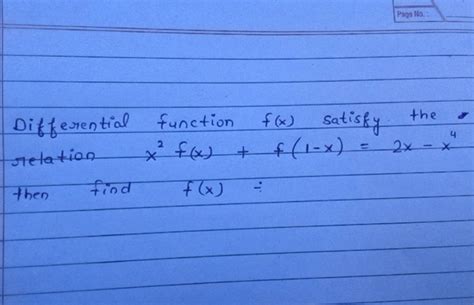 Page No. :
Differential function f(x) satisfy the
relation x² f(x) + f(1-x) = 2x - x⁴
then find f(x) ÷